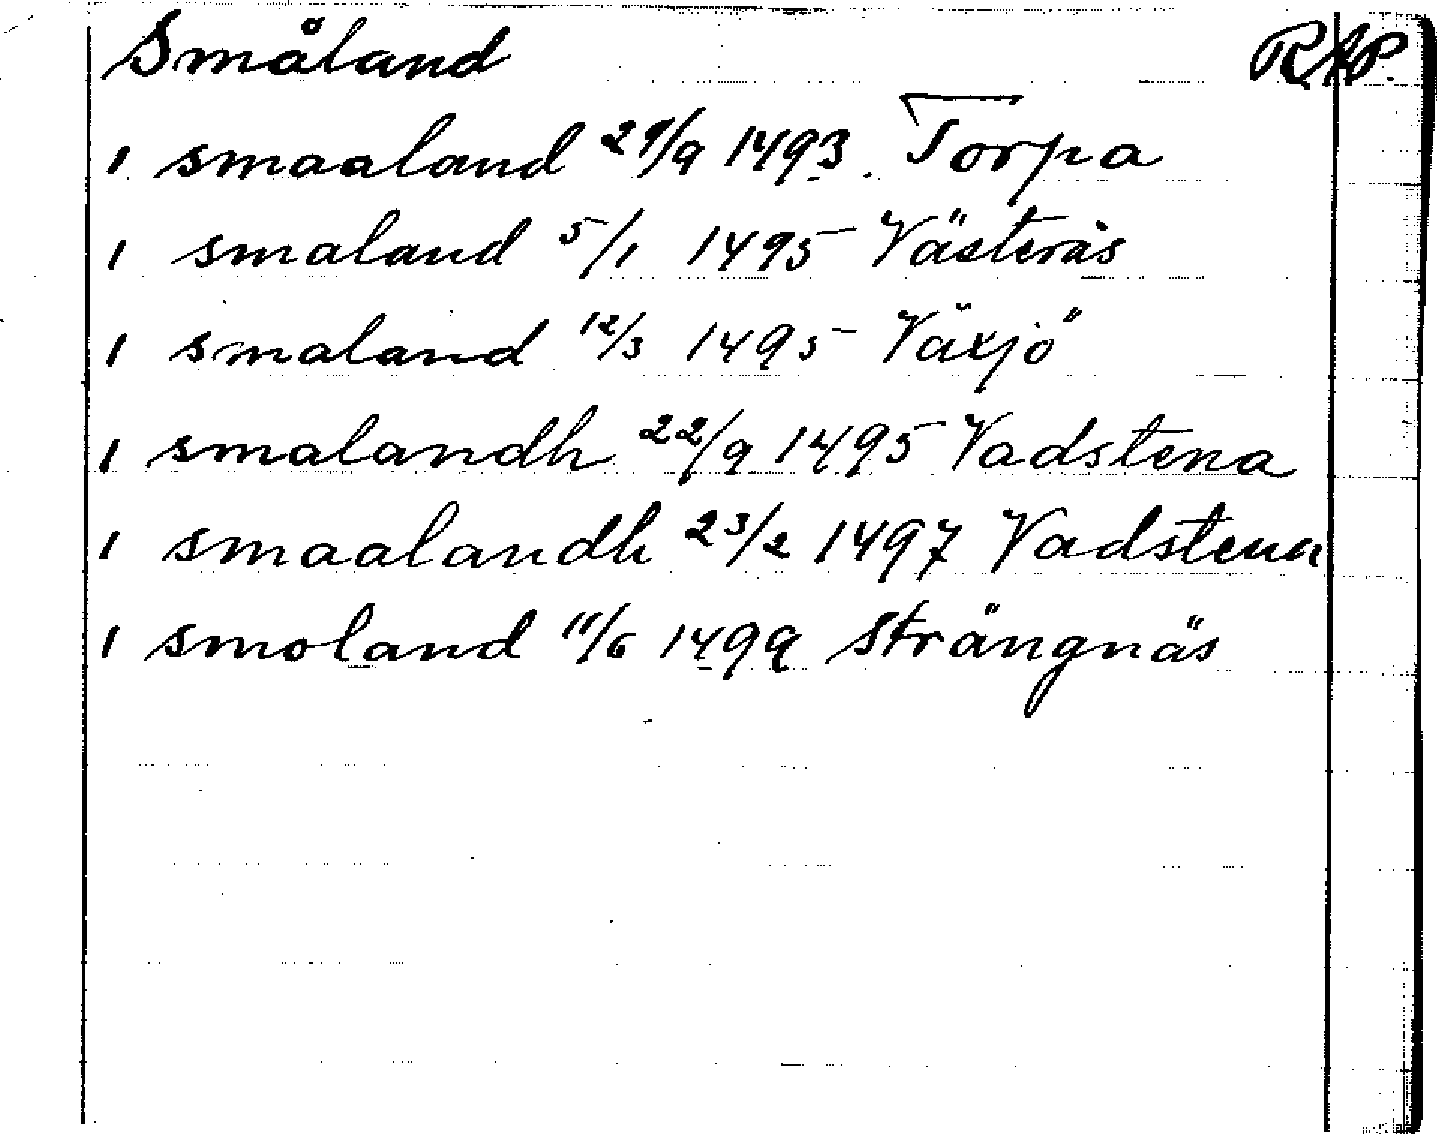 Småland RAP
1 smaaland 29/9 1493. Torpa
1 smaland 5/1 1495 Västerås
1 smaland 12/3 1495 Växjö
1 smalandh 22/9 1495 Vadstena
1 smaalandh 23/2 1497 Vadstena
1 smoland 11/6 1499 Strängnäs